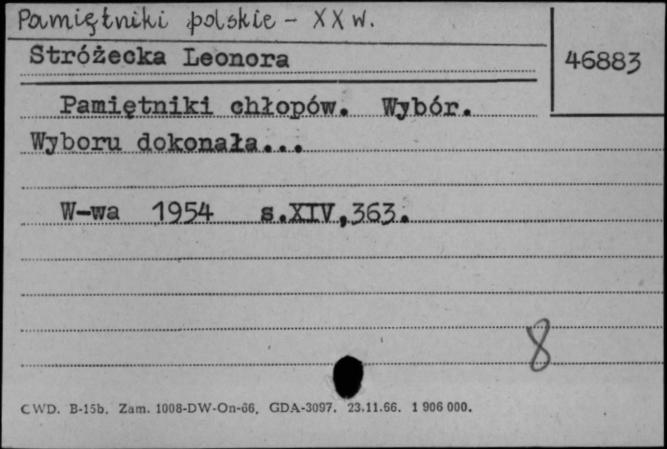 Pamiętniki polskie - XX w.
Stróżecka Leonora
46883
Pamiętniki chłopów. Wybór.
Wyboru dokonała...
W-wa 1954 s.XIV,363.
8
CWD. B-15b. Zam. 1008-DW-On-66. GDA-3097. 23.11.66. 1 906 000.